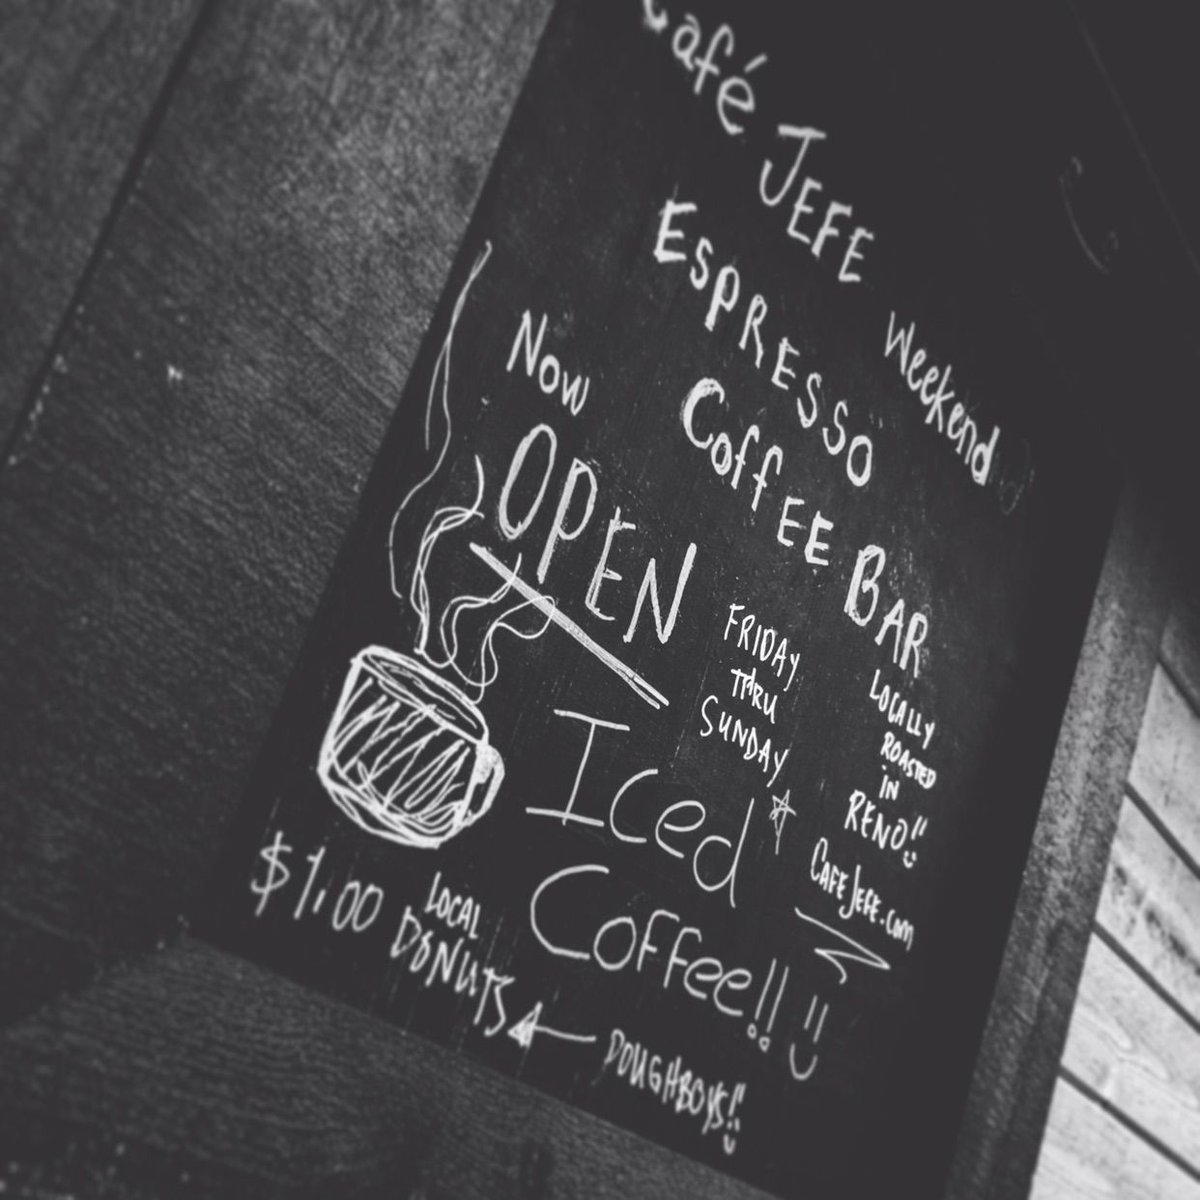 Café JEFE
Weekend
ESPRESSO
CoffEE BAR
Now
OPEN
FRIDAY
THRU
SUNDAY
LOCALLY
ROASTED
in
RENO!!
CAFEJEFE.com
Iced
Coffee!!
$1.00 LOCAL
DONUTS
DOUGHBOYS!!